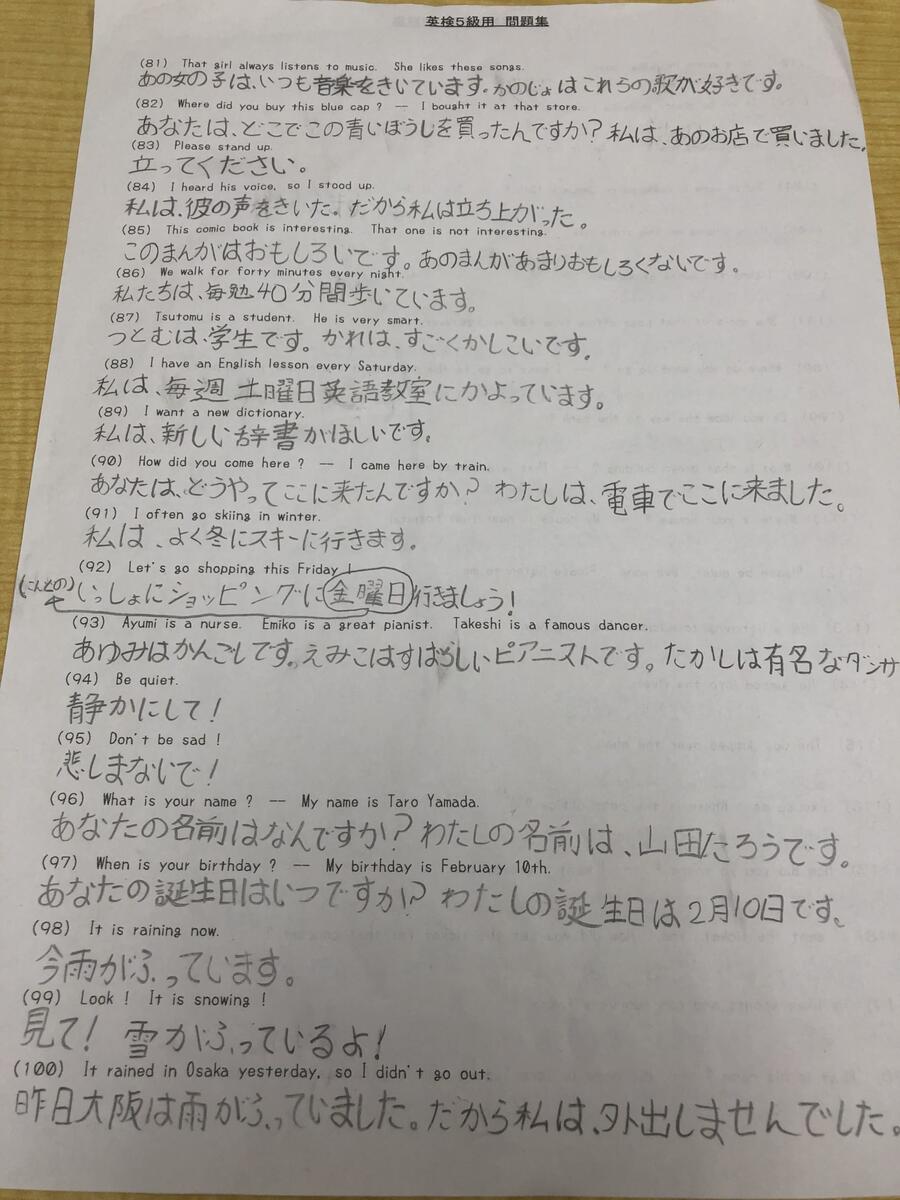 英検5級用 問題集
(81) That girl always listens to music. She likes these songs.
あの女の子は、いつも音楽をきいています。かのじょはこれらの歌が好きです。
(82) Where did you buy this blue cap ? -- I bought it at that store.
あなたは、どこでこの青いぼうしを買ったんですか?私は、あのお店で買いました。
(83) Please stand up.
立ってください。
(84) I heard his voice, so I stood up.
私は、彼の声をきいた。だから私は立ち上がった。
(85) This comic book is interesting. That one is not interesting.
このまんがはおもしろいです。あのまんがあまりおもしろくないです。
(86) We walk for forty minutes every night.
私たちは、毎勉40分間歩いています。
(87) Tsutomu is a student. He is very smart.
つとむは、学生です。かれは、すごくかしこいです。
(88) I have an English lesson every Saturday.
私は、毎週土曜日英語教室にかよっています。
(89) I want a new dictionary.
私は、新しい辞書がほしいです。
(90) How did you come here ? -- I came here by train.
あなたは、どうやってここに来たんですか? わたしは、電車でここに来ました。
(91) I often go skiing in winter.
私は、よく冬にスキーに行きます。
(92) Let's go shopping this Friday !
(こんどの) いっしょにショッピングに金曜日行きましょう!
(93) Ayumi is a nurse. Emiko is a great pianist. Takeshi is a famous dancer.
あゆみはかんごしです。えみこはすばらしいピアニストです。たかしは有名なダンサ
(94) Be quiet.
静かにして!
(95) Don't be sad !
悲しまないで!
(96) What is your name ? -- My name is Taro Yamada.
あなたの名前はなんですか?わたしの名前は、山田たろうです。
(97) When is your birthday ? -- My birthday is February 10th.
あなたの誕生日はいつですか? わたしの誕生日は2月10日です。
(98) It is raining now.
今雨がふっています。
(99) Look ! It is snowing !
見て! 雪がふっているよ!
(100) It rained in Osaka yesterday, so I didn't go out.
昨日大阪は雨がふっていました。だから私は、外出しませんでした。